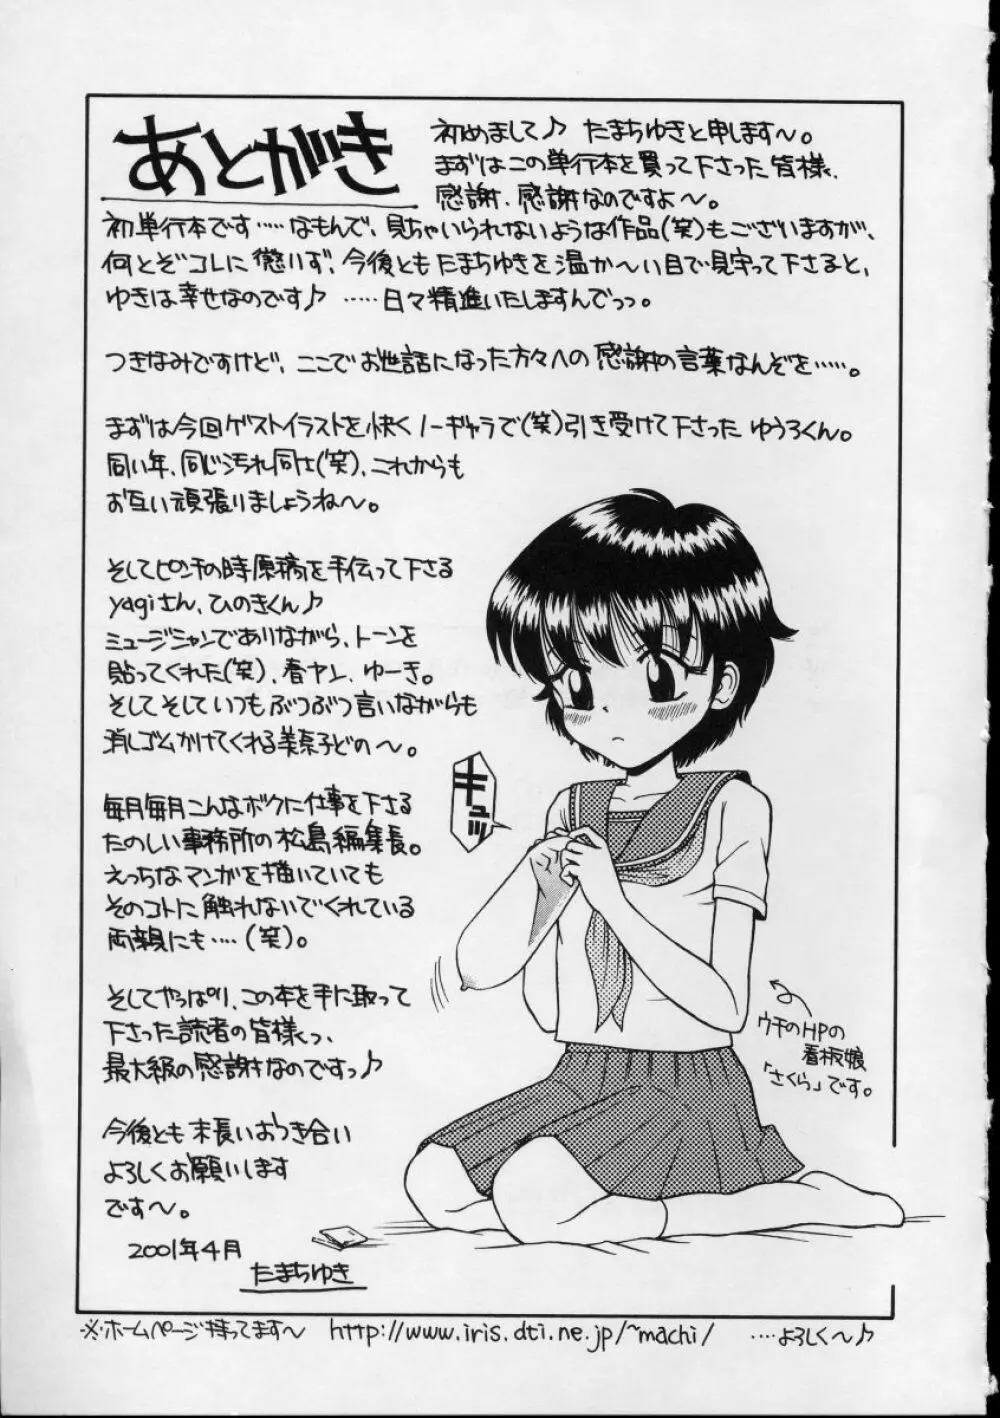 あとがき
初めまして♪ たまちゆきと申します〜。
まずはこの単行本を買って下さった皆様、
感謝、感謝なのですよ〜。
初単行本です……なもんで、見ちゃいられないような作品(笑)もございますが、
何とぞコレに懲りず、今後ともたまちゆきを温か〜い目で見守って下さると、
ゆきは幸せなのです♪ ……日々精進いたしますんでっっ。
つきなみですけど、ここでお世話になった方々への感謝の言葉なんぞを……。
まずは今回ゲストイラストを快くノーギャラで(笑)引き受けて下さったゆうろくん。
同い年、同じ汚れ同士(笑)、これからも
お互い頑張りましょうね〜。
そしてピンチの時原稿を手伝って下さる
yagiさん、ひのきくん♪
ミュージシャンでありながら、トーンを
貼ってくれた(笑)、春ヤン、ゆーき。
そしてそしていつもぶつぶつ言いながらも
消しゴムかけてくれる美奈子どの〜。
毎月毎月こんなボクに仕事を下さる
たのしい事務所の松島編集長。
えっちなマンガを描いていても
そのコトに触れないでくれている
両親にも‥‥(笑)。
そしてやっぱり、この本を手に取って
下さった読者の皆様っ、
最大級の感謝なのですっ♪
今後とも末長いおつき合い
よろしくお願いします
です〜。
2001年4月
たまちゆき
キュッ
ウチのHPの
看板娘
「さくら」です。
※ホームページ持ってます〜 http://www.iris.dti.ne.jp/~machi/ ‥‥よろしく〜♪